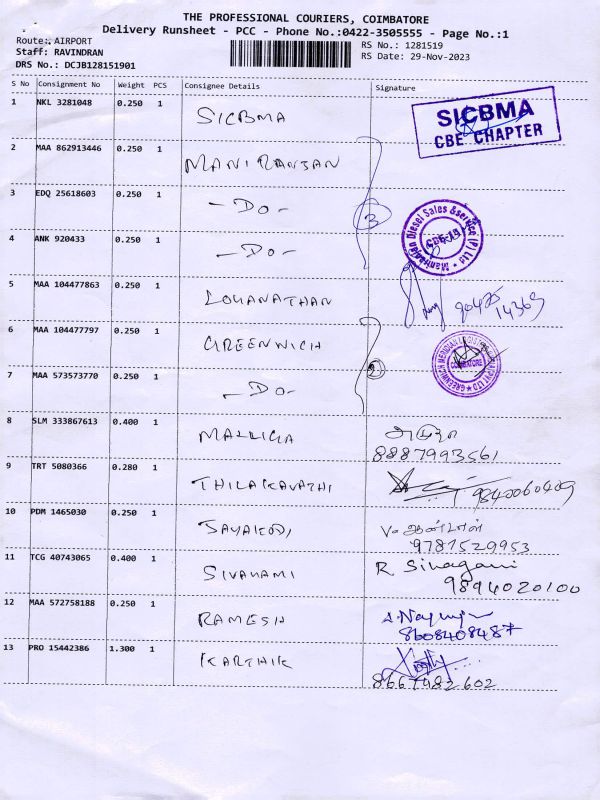 THE PROFESSIONAL COURIERS, COIMBATORE
Delivery Runsheet - PCC - Phone No.:0422-3505555 - Page No.:1
Route:. AIRPORT
RS No.: 1281519
Staff: RAVINDRAN
RS Date: 29-Nov-2023
DRS No.: DCJB128151901
S No Consignment No Weight PCS Consignee Details Signature
1 NKL 3281048 0.250 1 SICBMA SICBMA
CBE CHAPTER
2 MAA 862913446 0.250 1 MANIRANJAN
3 EDQ 25618603 0.250 1 -DO- 3
4 ANK 920433 0.250 1 -DO-
5 MAA 104477863 0.250 1 LOHANATHAN
6 MAA 104477797 0.250 1 GREENWICH
7 MAA 573573770 0.250 1 -DO- 2
8 SLM 333867613 0.400 1 MALLIGA
8887993561
9 TRT 5080366 0.280 1 THILAKAVATHI
10 PDM 1465030 0.250 1 JAYAKODI
9781529953
11 TCG 40743065 0.400 1 SIVAKAMI R Sivagami
9894020100
12 MAA 572758188 0.250 1 RAMESH
8608408487
13 PRO 15442386 1.300 1 KARTHIK
8667482602